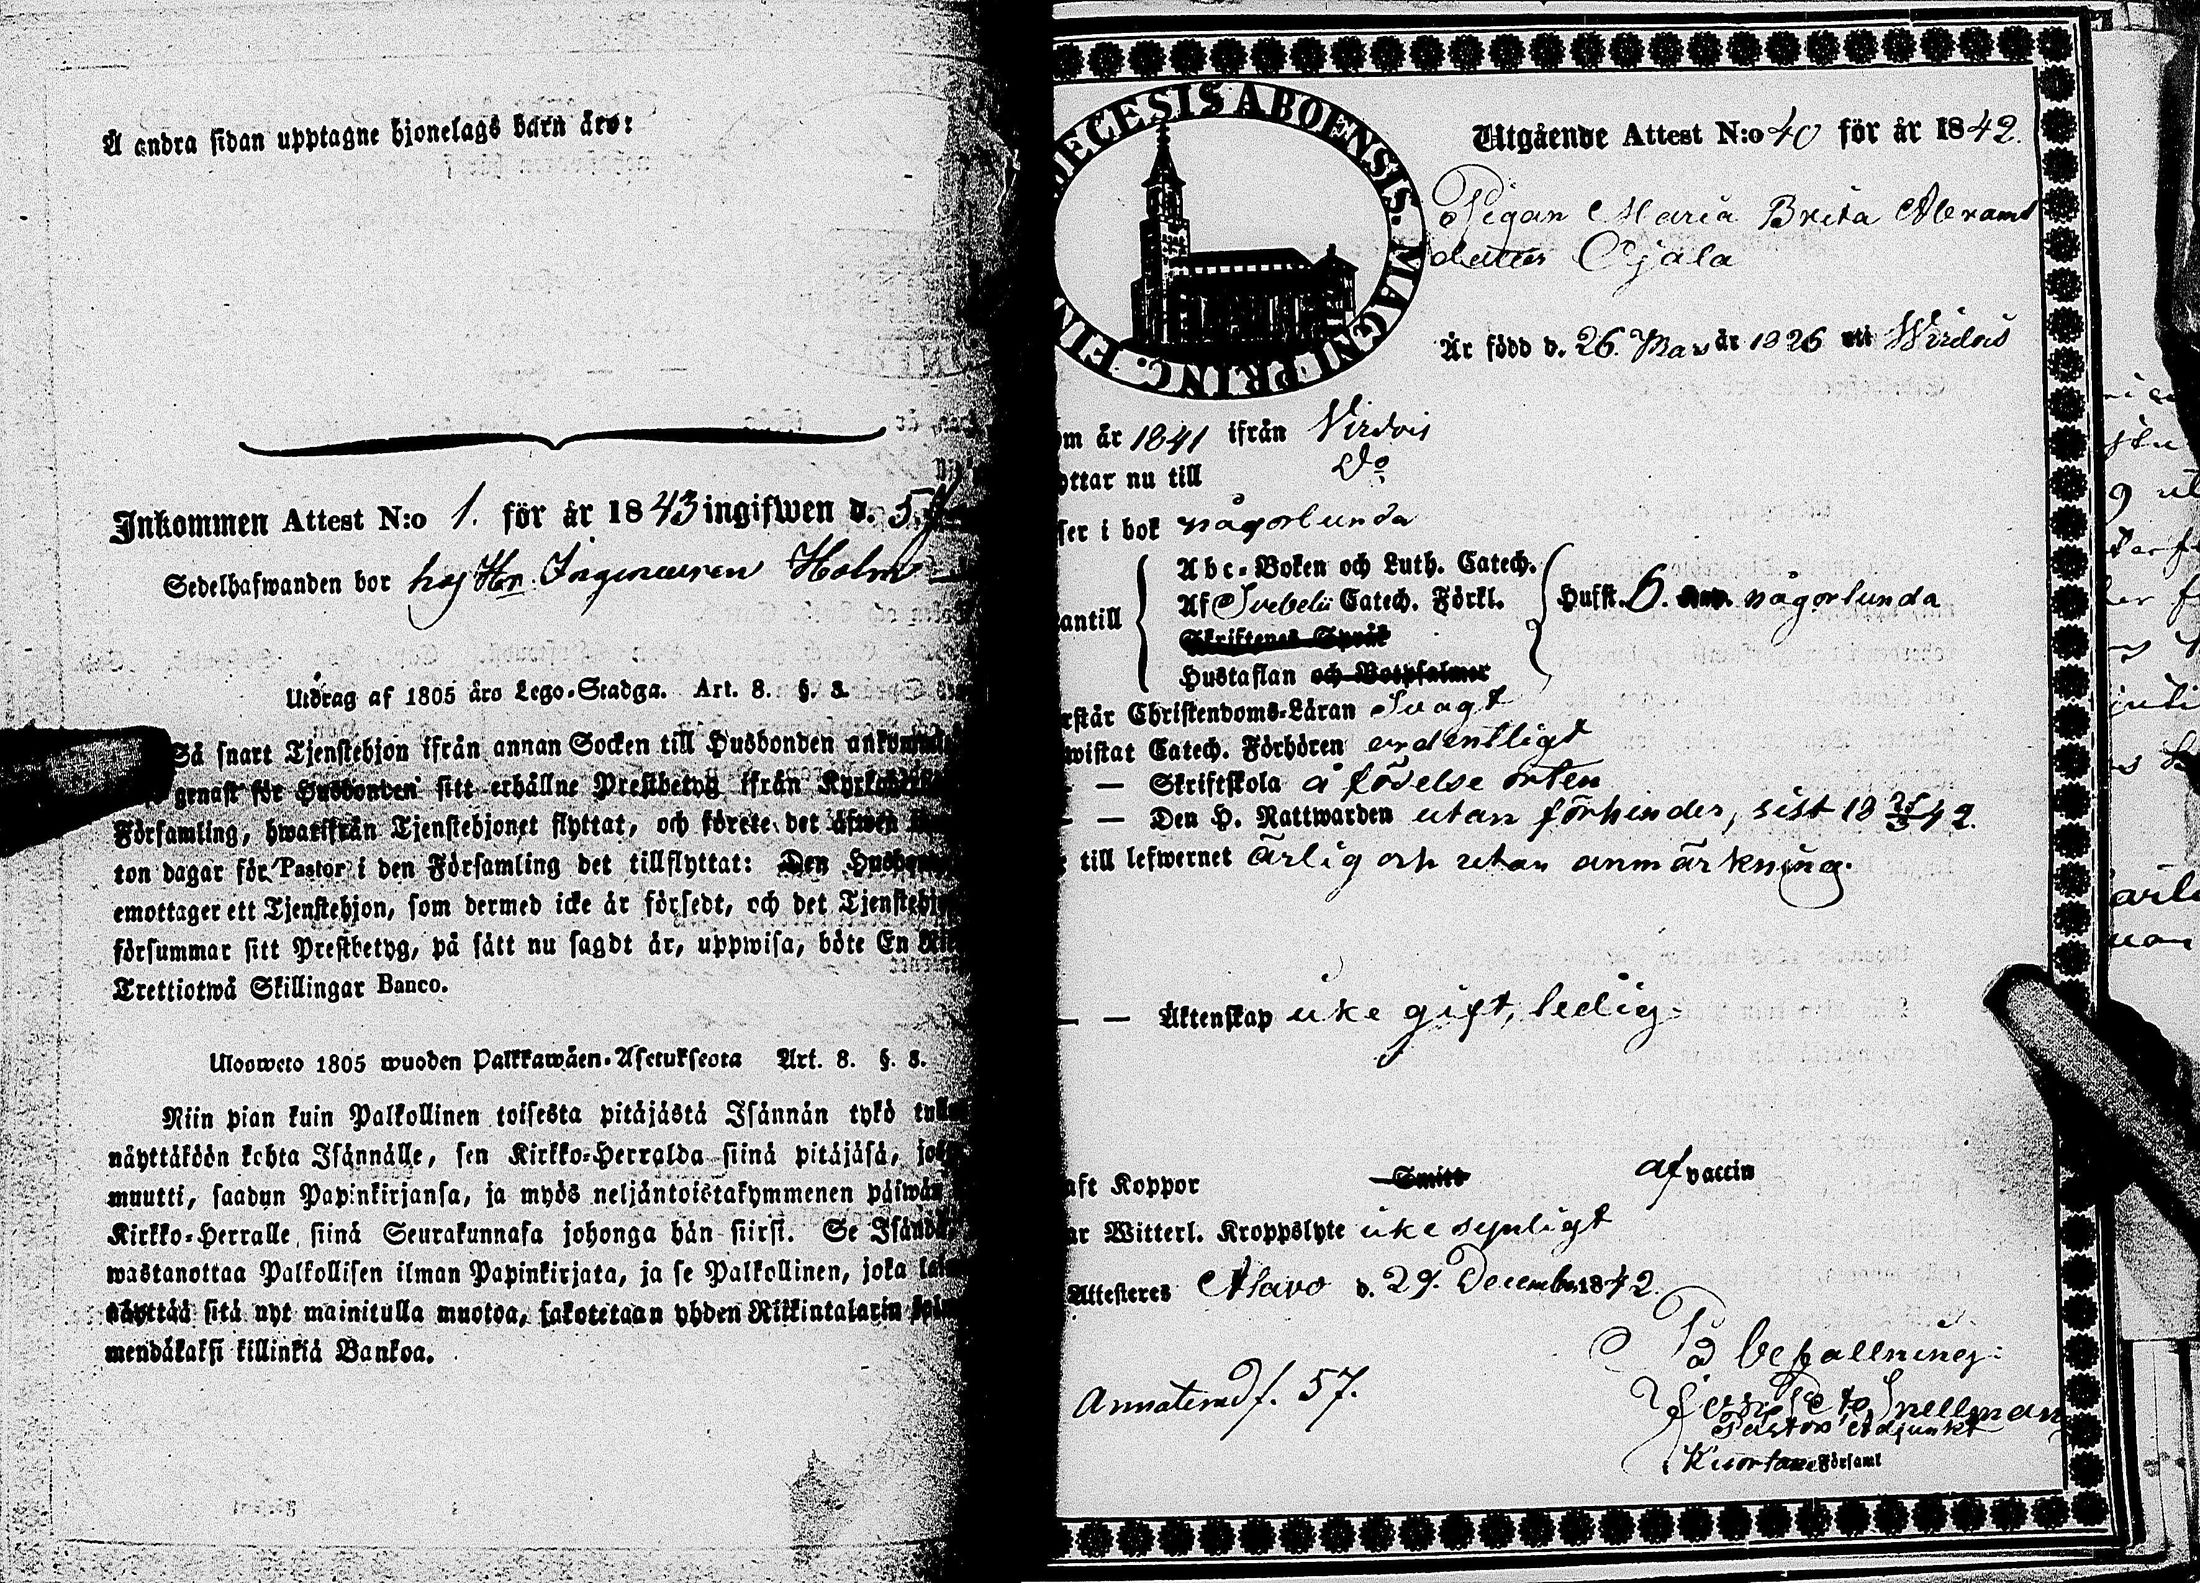 Å andra sidan upptagne hjonelags barn äro:
Inkommen Attest N:o 1. för år 1843 ingifwen d. 5
Sedelhafwanden bor hos Hr. Ingenieuren Holm
Utdrag af 1805 års Lego-Stadga. Art. 8. §. 8.
Så snart Tjenstehjon ifrån annan Socken till Husbonden
genast för Husbonden sitt erhållne Prestbetyg ifrån
Församling, hwarifrån Tjenstehjonet flyttat, och förete det äfwen
ton dagar för Pastor i den Församling det tillflyttat: Den
emottager ett Tjenstehjon, som dermed icke är försedt, och det
försummar sitt Prestbetyg, på sätt nu sagdt är, uppwisa, böte En
Trettiotwå Skillingar Banco.
Ulosweto 1805 wuoden Palkkawäen-Asetuksesta Art. 8. §. 8.
Niin pian kuin Palkollinen toisesta pitäjästä Isännän tykö
näyttäköön kohta Isännälle, sen Kirkko-Herralda siinä pitäjäsä,
muutti, saadun Papinkirjansa, ja myös neljäntoistakymmenen päiwän
Kirkko-Herralle siinä Seurakunnasa johonga hän siirsi. Se
wastanottaa Palkollisen ilman Papinkirjata, ja se Palkollinen, joka
näyttää sitä nyt mainitulla muotoa, sakotetaan yhden Rikkintalarin
mendäkaksi killinkiä Bankoa.
DIECESIS ABOENSIS. MAGNI PRINC. FIN
Utgående Attest N:o 40 för år 1842.
Pigan Maria Brita Abrams
dotter Ojala
Är född d. 26. Mars år 1826 uti Wirdois
om år 1841 ifrån Virdois
ottar nu till Do
ser i bok någorlunda
antill
Abc-Boken och Luth. Catech.
Af Svebelii Catech. Förkl.
Skriftenes Språk
Hustaflan och Botpsalmer
Hufst. 6. någorlunda
rstår Christendoms-Läran Svagt
wistat Catech. Förhören ordentligt
— Skriftskola å födelse orten
— — Den H. Nattwarden utan förhinder, sist 18 42.
till lefwernet ärlig och utan anmärkning.
— — Äktenskap icke gift, ledig.
aft Koppor Smitt af vaccin
ar Witterl. Kroppslyte icke synligt
Attesteres Alavo d. 29. December 1842.
På befallning:
Snellman
Pastors Adjunkt
Kuortane Församl
Annoterad f. 57.